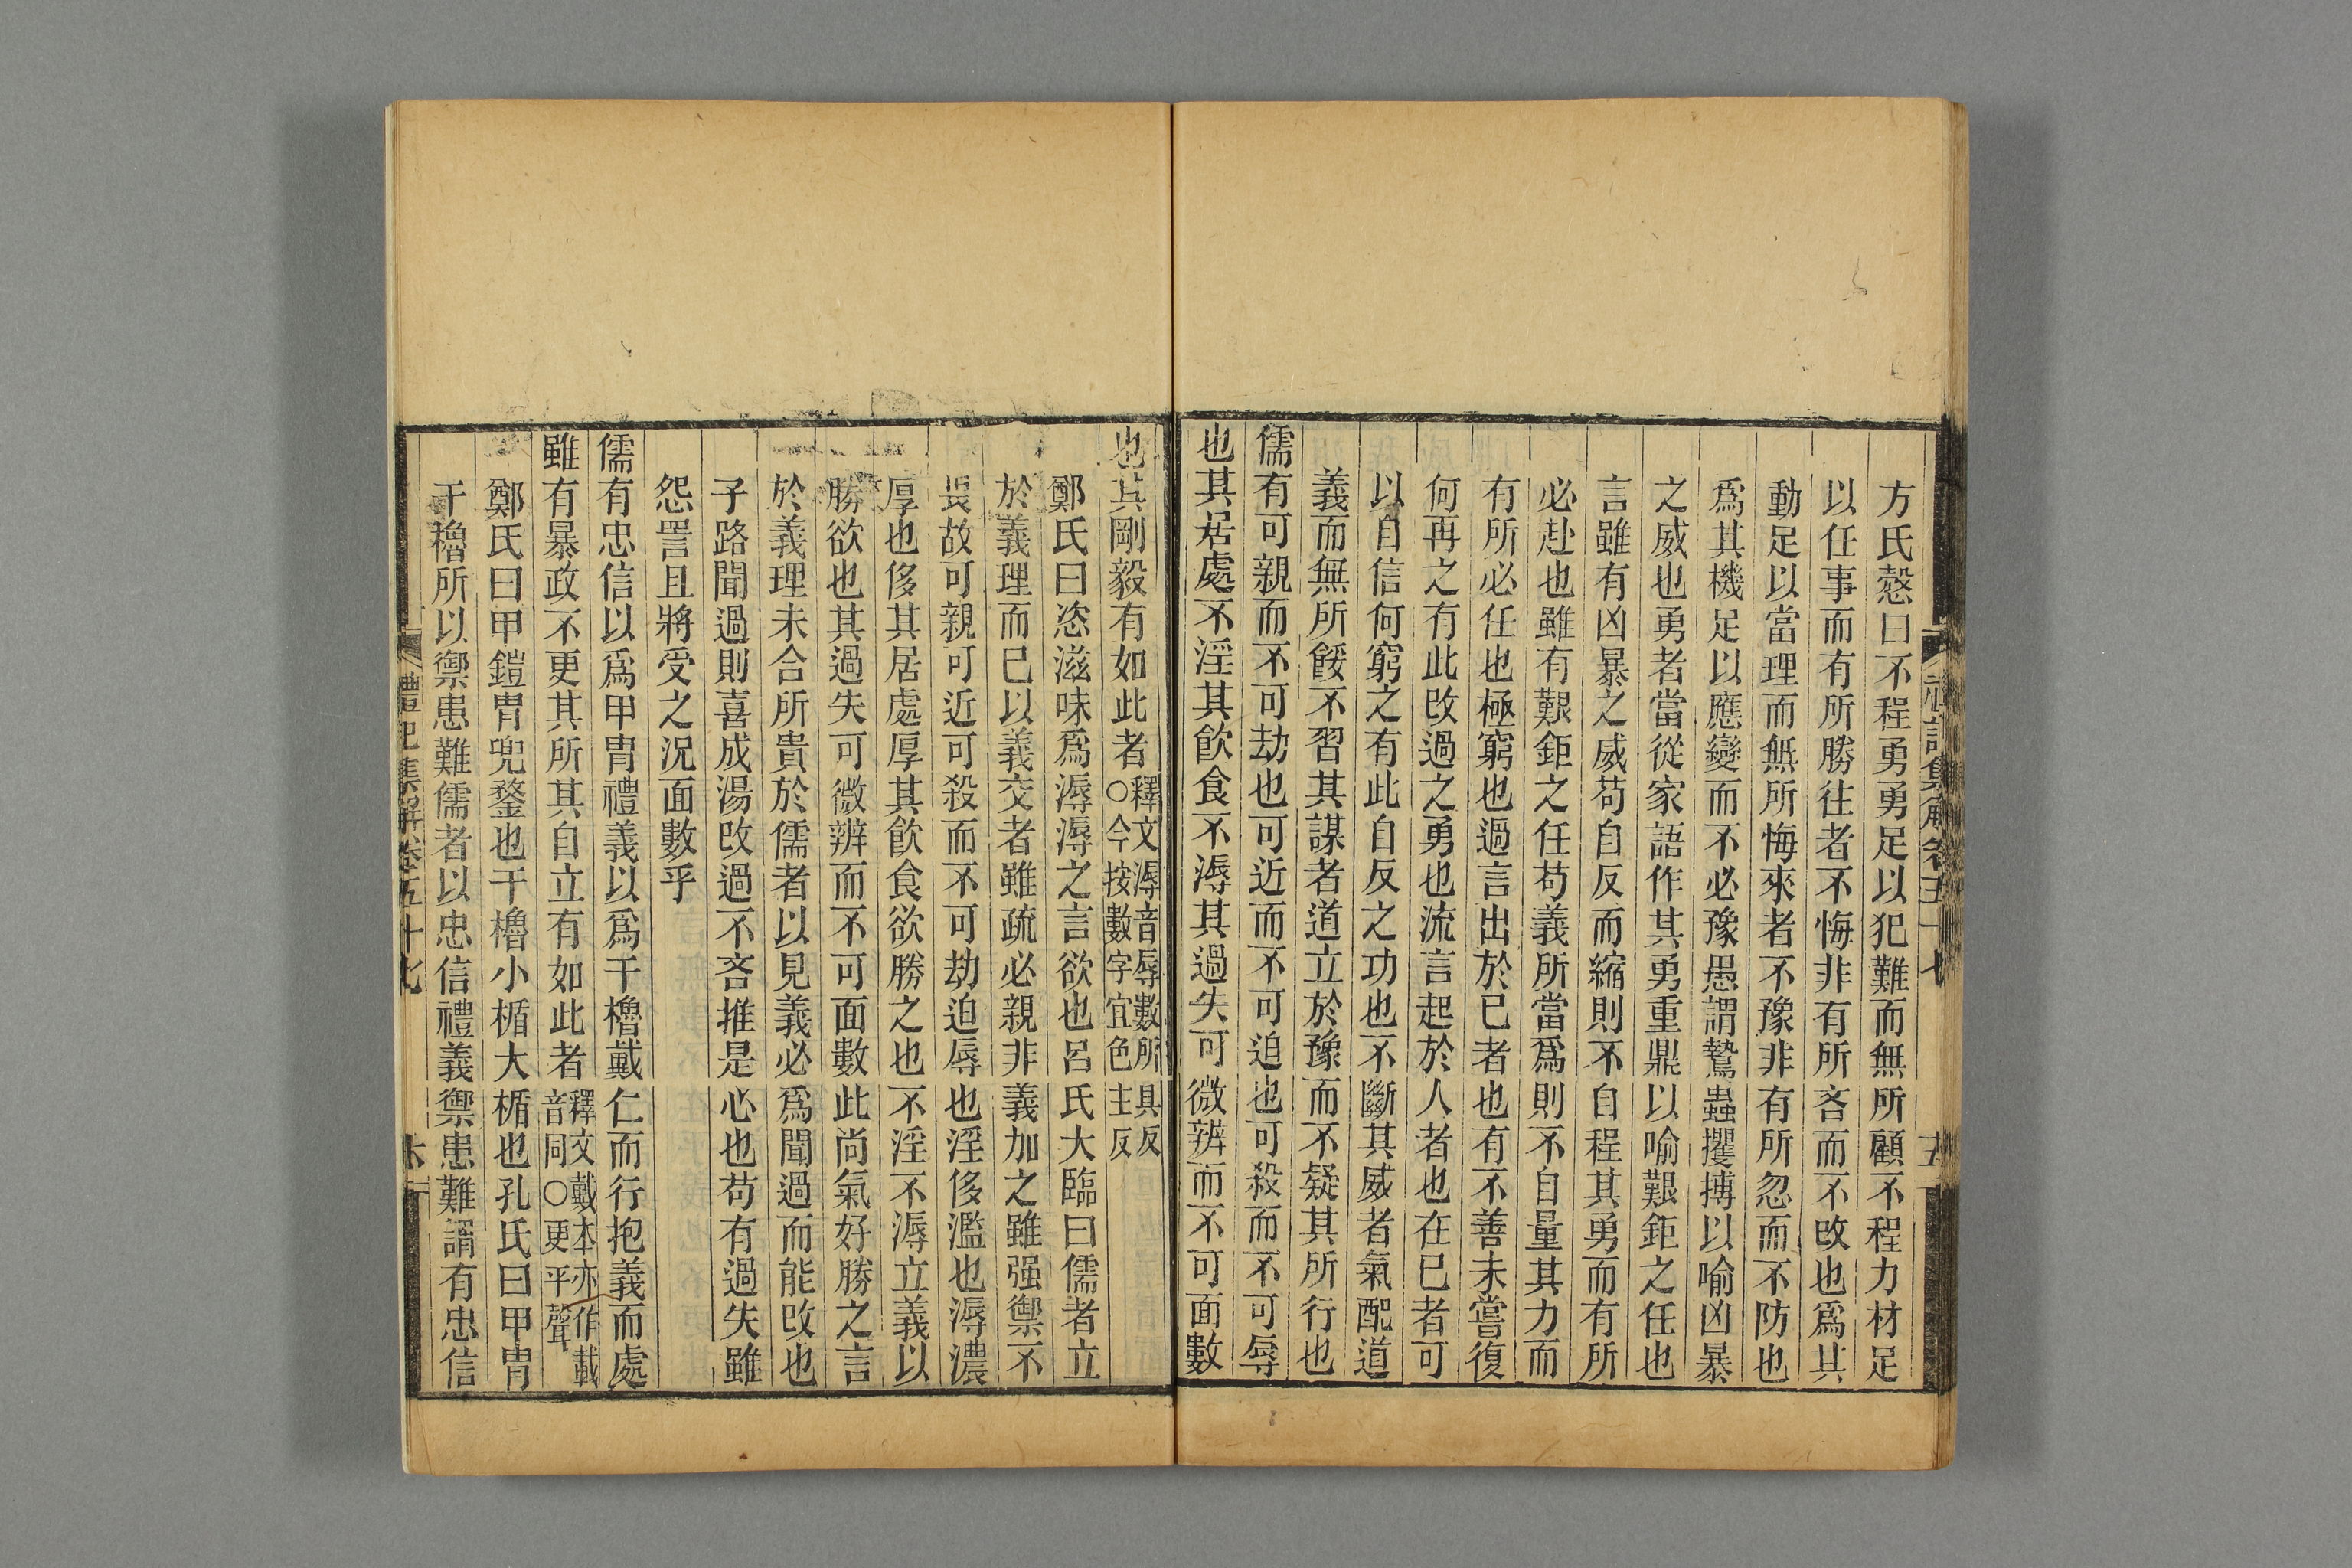 禮記集解卷五十七
五
方氏慤曰不程勇勇足以犯難而無所顧不程力材足
以任事而有所勝往者不悔非有所吝而不改也爲其
動足以當理而無所悔來者不豫非有所忽而不防也
爲其機足以應變而不必豫愚謂鷙蟲攫搏以喻凶暴
之威也勇者當從家語作其勇重鼎以喻艱鉅之任也
言雖有凶暴之威苟自反而縮則不自程其勇而有所
必赴也雖有艱鉅之任苟義所當爲則不自量其力而
有所必任也極窮也過言出於已者也有不善未嘗復
何再之有此改過之勇也流言起於人者也在已者可
以自信何窮之有此自反之功也不斷其威者氣配道
義而無所餒不習其謀者道立於豫而不疑其所行也
儒有可親而不可劫也可近而不可迫也可殺而不可辱
也其居處不淫其飲食不溽其過失可微辨而不可面數
也其剛毅有如此者釋文溽音辱數所具反○今按數字宜色主反
鄭氏曰恣滋味爲溽溽之言欲也呂氏大臨曰儒者立
於義理而已以義交者雖疏必親非義加之雖强禦不
畏故可親可近可殺而不可劫迫辱也淫侈濫也溽濃
厚也侈其居處厚其飲食欲勝之也不淫不溽立義以
勝欲也其過失可微辨而不可面數此尚氣好勝之言
於義理未合所貴於儒者以見義必爲聞過而能改也
子路聞過則喜成湯改過不吝推是心也苟有過失雖
怨詈且將受之況面數乎
儒有忠信以爲甲胄禮義以爲干櫓戴仁而行抱義而處
雖有暴政不更其所其自立有如此者釋文戴本亦作載音同○更平聲
鄭氏曰甲鎧胄兜鍪也干櫓小楯大楯也孔氏曰甲胄
干櫓所以禦患難儒者以忠信禮義禦患難謂有忠信
禮記集解卷五十七